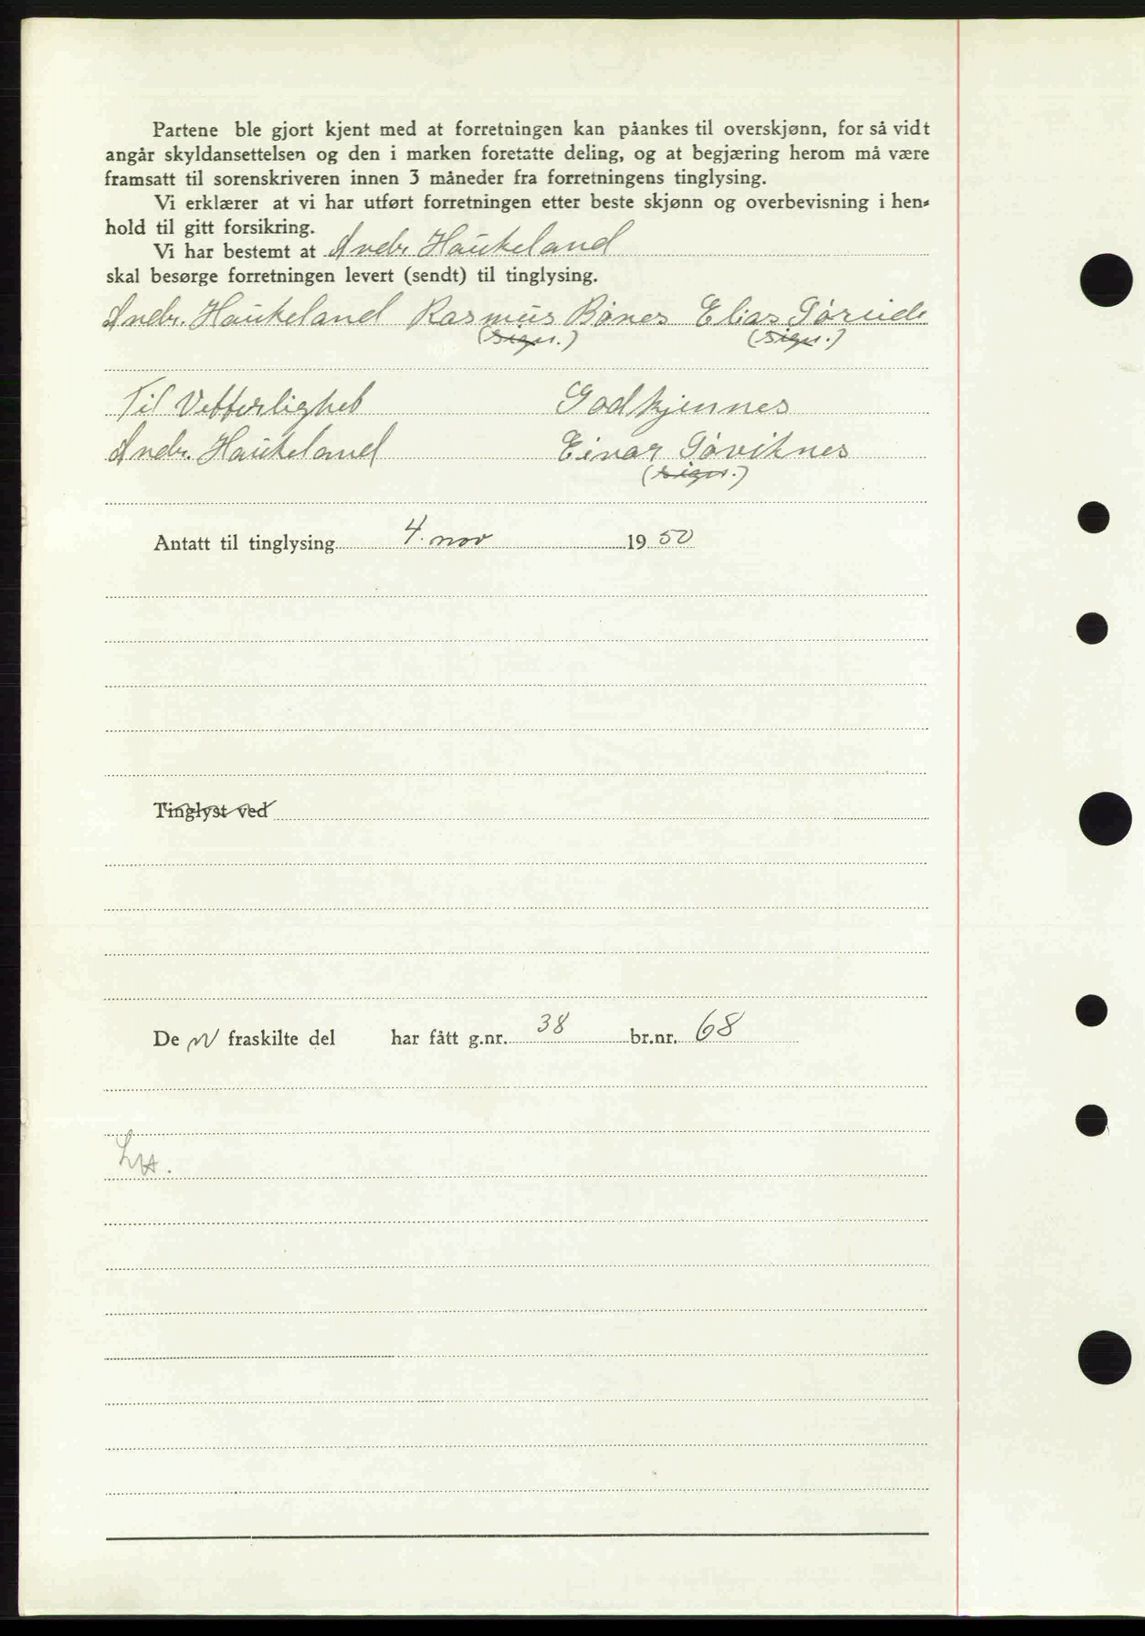 Partene ble gjort kjent med at forretningen kan påankes til overskjønn, for så vidt
angår skyldansettelsen og den i marken foretatte deling, og at begjæring herom må være
framsatt til sorenskriveren innen 3 måneder fra forretningens tinglysing.
Vi erklærer at vi har utført forretningen etter beste skjønn og overbevisning i hen-
hold til gitt forsikring.
Vi har bestemt at Andr. Haukeland
skal besørge forretningen levert (sendt) til tinglysing.
Andr. Haukeland Rasmus Bönes Elias
(sign.) (sign.)
Til Vitterlighet Godkjennes
Andr. Haukeland Einar
(sign.)
Antatt til tinglysing 4. nov 1950
Tinglyst ved
De n fraskilte del har fått g.nr. 38 br.nr. 68